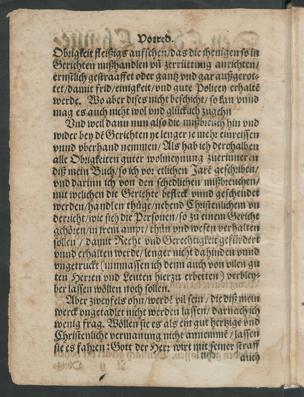 Vorred.
Obigkeit fleissigs auffsehen / das die jhenigen so in
Gerichten mißhandlen vñ zerrüttung anrichten /
ernstlich gestraaffet oder gantz vnd gar außgerot-
tet / damit frid / einigkeit / vnd gute Policey erhaltẽ
werde. Wo aber dises nicht beschicht / so kan vnnd
mag es auch nicht wol vnd glücklich zugehn
Vnd weil dann nun also die mißbreüch hin vnd
wider bey dẽ Gerichten ye lenger je mehr einreissen
vnnd vberhand nemmen / Als hab ich derohalben
alle Obigkeiten guter wolmeynung zuerinnern
diß mein Buch / so ich vor etlichen Jarẽ geschriben /
vnd darinn ich von den schedlichen mißbreüchen /
mit welichen die Gerichte befleckt vnnd geschendet
werden / handlen thüge / nebend Christenlichem vn
derricht / wie sich die Personen / so zu einem Gericht
gehören / in jrem ampt / thůn vnd wesen verhalten
sollen / damit Recht vnd Gerechtigkeit gefürdert
vnnd erhalten werde / lenger nicht dahinden vnnd
vngetruckt (vmmassen ich dann auch von vilen gu
ten Herren vnd Leuten hierzu erbetten) verbley-
ben lassen wöllen noch sollen.
Aber zweyfels ohn / werdẽ vil sein / die diß mein
werck vngetadlet nicht werden lassen / darnach ich
wenig frag. Wöllen sie es als ein gut hertzige vnd
Christenliche vermanung nicht annemmẽ / lassen
sie es fahren: Gott der Herr wirt mit seiner straff
auch